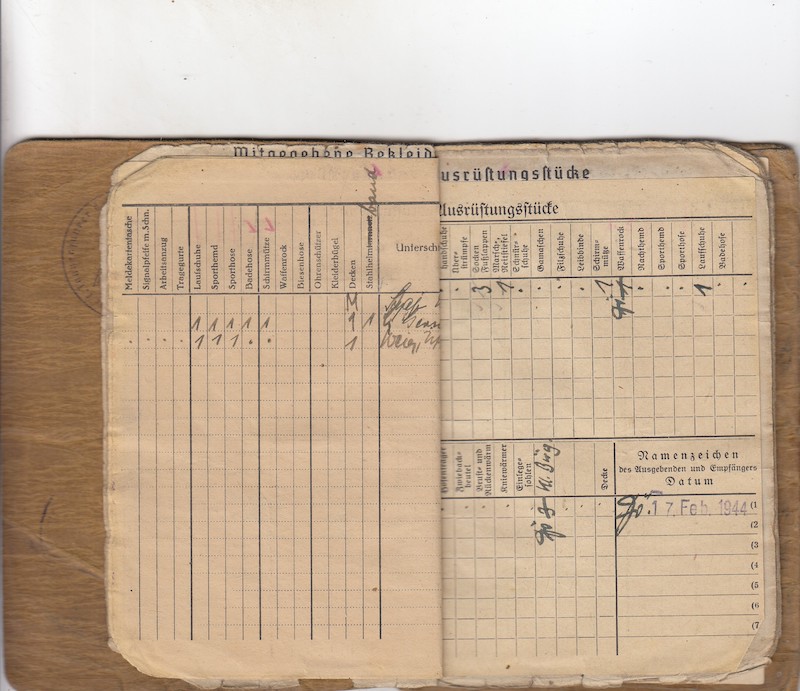 Mitgegebene Bekleid
Meldekartentasche
Signalpfeife m. Schn.
Arbeitsanzug
Tragegurte
Laufschuhe
Sporthemd
Sporthose
Badehose
Schirmmütze
Waffenrock
Biesenhose
Ohrenschützer
Kleiderbügel
Decken
Untersch
2
1 1 1 1 1 2 1
. . . . 1 1 1 . . 1
usrüstungsstücke
Ausrüstungsstücke
handschuhe
Über-
strümpfe
Socken
Fußlappen
Marsch-
Reitstiefel
Schnür-
schuhe
Gamaschen
Filzschuhe
Leibbinde
Schirm-
mütze
Waffenrock
Nachthemd
Sporthemd
Sporthose
Laufschuhe
Badehose
3 1 1 1
Hosenträger
Zwieback-
beutel
Brust- und
Rückenwärm
Kniewärmer
Einlege-
sohlen
Decke
Namenzeichen
des Ausgebenden und Empfängers
Datum
17. Feb. 1944 (1
(2
(3
(4
(5
(6
(7